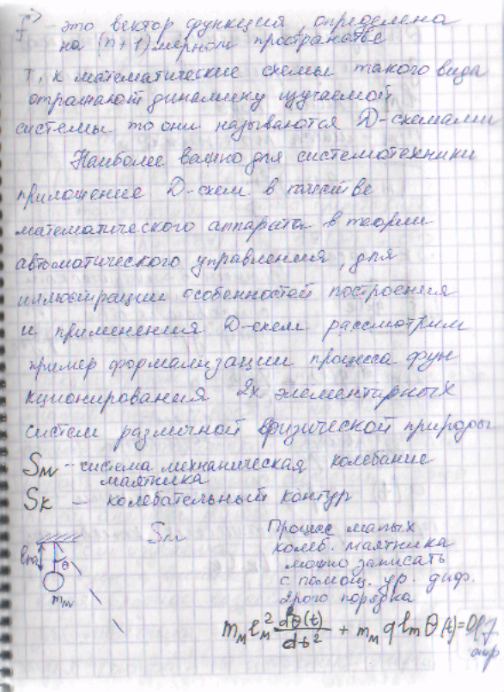 f⃗ - это вектор функция, определена
на (n+1) мерном пространстве
Т, к математические схемы такого вида
отражают динамику изучаемой
системы то они называются Д-схемами
Наиболее важно для системотехники
приложение Д-схем в качестве
математического аппарата в теории
автоматического управления, для
иллюстрации особенностей построения
и применения Д-схем рассмотрим
пример формализации процесса фун
кционирования 2х элементарных
систем различной физической природы
Sм - система механическая колебание
маятника
Sк — колебательный контур
Sм
Процесс малых
колеб. маятника
можно записать
с помощ. ур. диф.
2рого порядка
lм
θ
mм
mм lм² dθ(t)/dt² + mм g lм θ(t) = 0